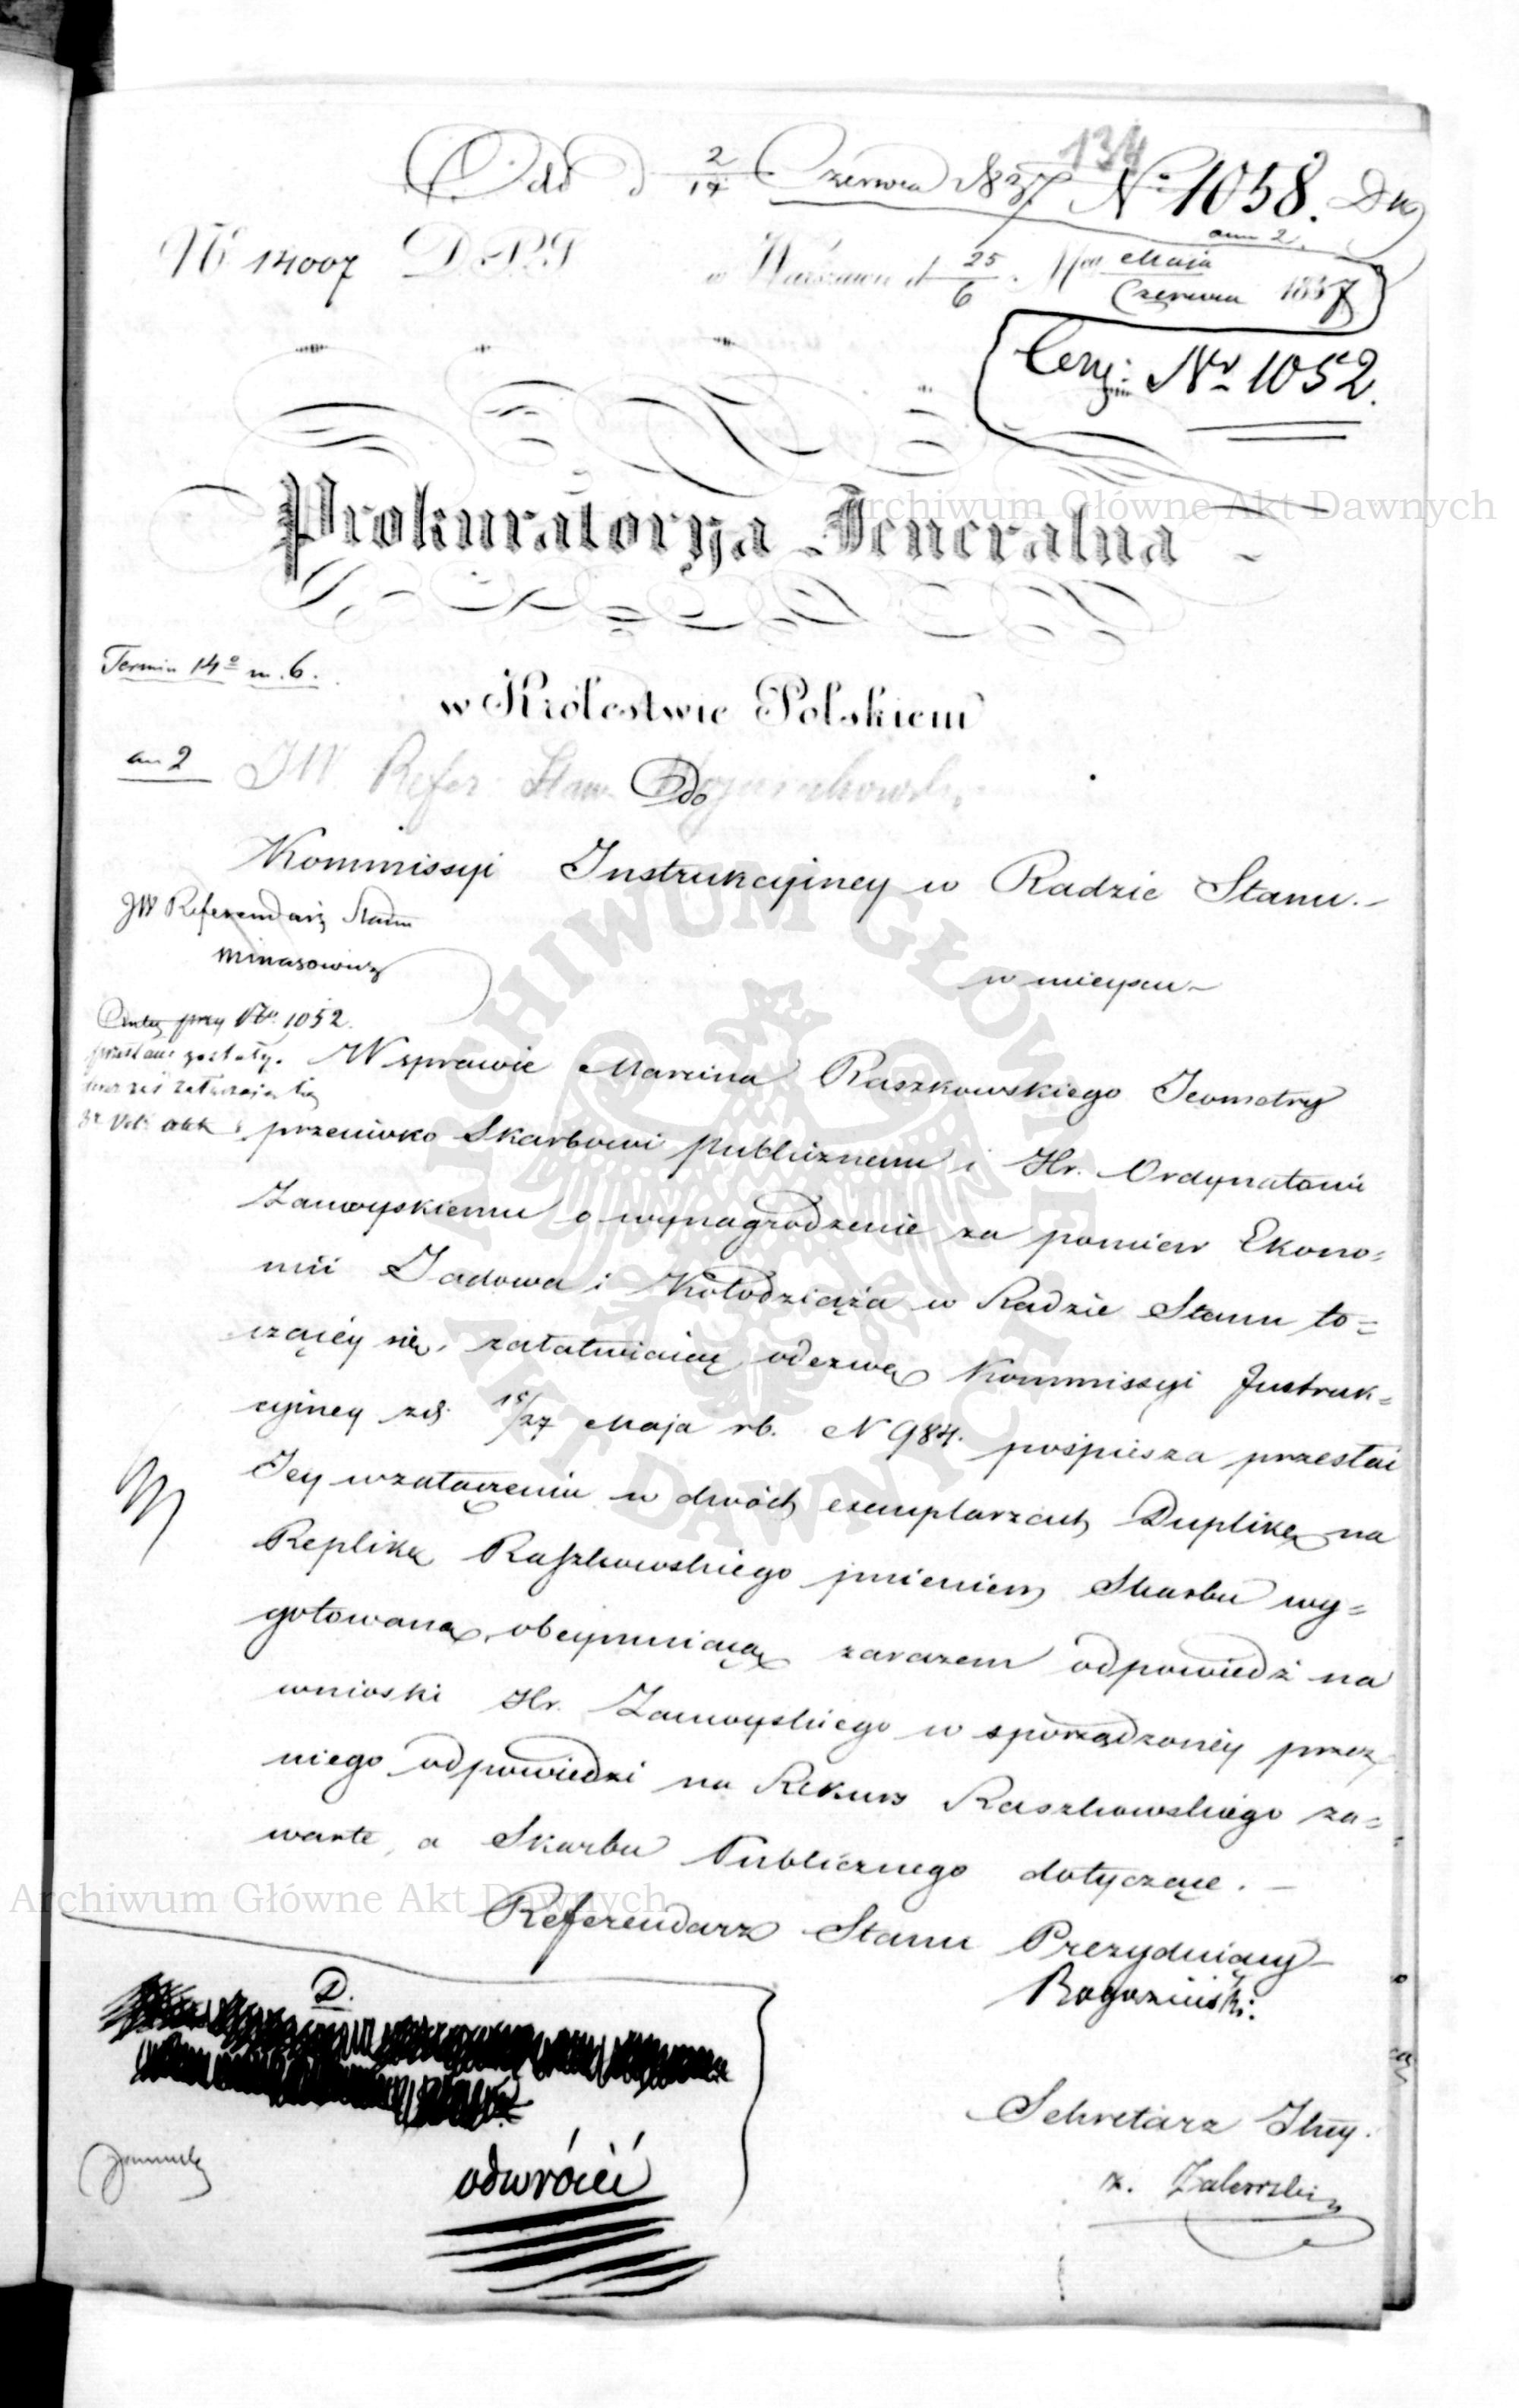 134
Odd d 2/14 Czerwca 1837 No 1058. Du
ann 2.
No 14007 D.P.I w Warszawie d 25/6 Mca Maja/Czerwca 1837
Nr 1052.
Prokuratorya Jeneralna
Archiwum Główne Akt Dawnych
Termin 14o m. 6.
w Królestwie Polskiem
an 2
JW Refer Stanu
Do
Kommissyi Instrukcyiney w Radzie Stanu.-
JW Referendarz Stanu
Minasowicz
w mieyscu-
przy No. 1052.
W sprawie Marcina Raszkowskiego Jeometry
przeciwko Skarbowi publicznemu i Hr. Ordynatowi
Zamoyskiemu o wynagrodzenie za pomiar Ekono=
mii Jadowa i Kołodziąża w Radzie Stanu to=
czącéy się, załatwiaiąc odezwę Kommissyi Instruk=
cyiney zd. 15/27 Maja rb. N 984. pośpiesza przesłać
Jey w załączeniu w dwóch exemplarzach Duplikę na
Replikę Raszkowskiego jmieniem Skarbu wy=
gotowaną, obeymuiącą zarazem odpowiedź na
wnioski Hr. Zamoyskiego w sporządzonéy przez
niego odpowiedzi na Rekurs Raszkowskiego za=
warte, a Skarbu Publicznego dotyczące. -
Archiwum Główne Akt Dawnych
Referendarz Stanu Prezyduiący
Rogoziński.
D.
Sekretarz Jlny.
z. Zaleski
odwrócić
ARCHIWUM GŁÓWNE
AKT DAWNYCH